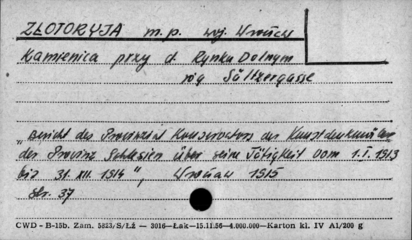 ZŁOTORYJA m.p. woj. Wrocław
Kamienica przy d. Rynku Dolnym
róg Sältzergasse
„Bericht des Provinzial Konservators der Kunstdenkmäler
der Provinz Schlesien über seine Tätigkeit vom 1.I.1913
bis 31.XII.1914", Wrocław 1915
str. 37
CWD - B-15b. Zam. 5823/S/Łź — 3016—Łak—15.11.56—4.000.000—Karton kl. IV A1/200 g